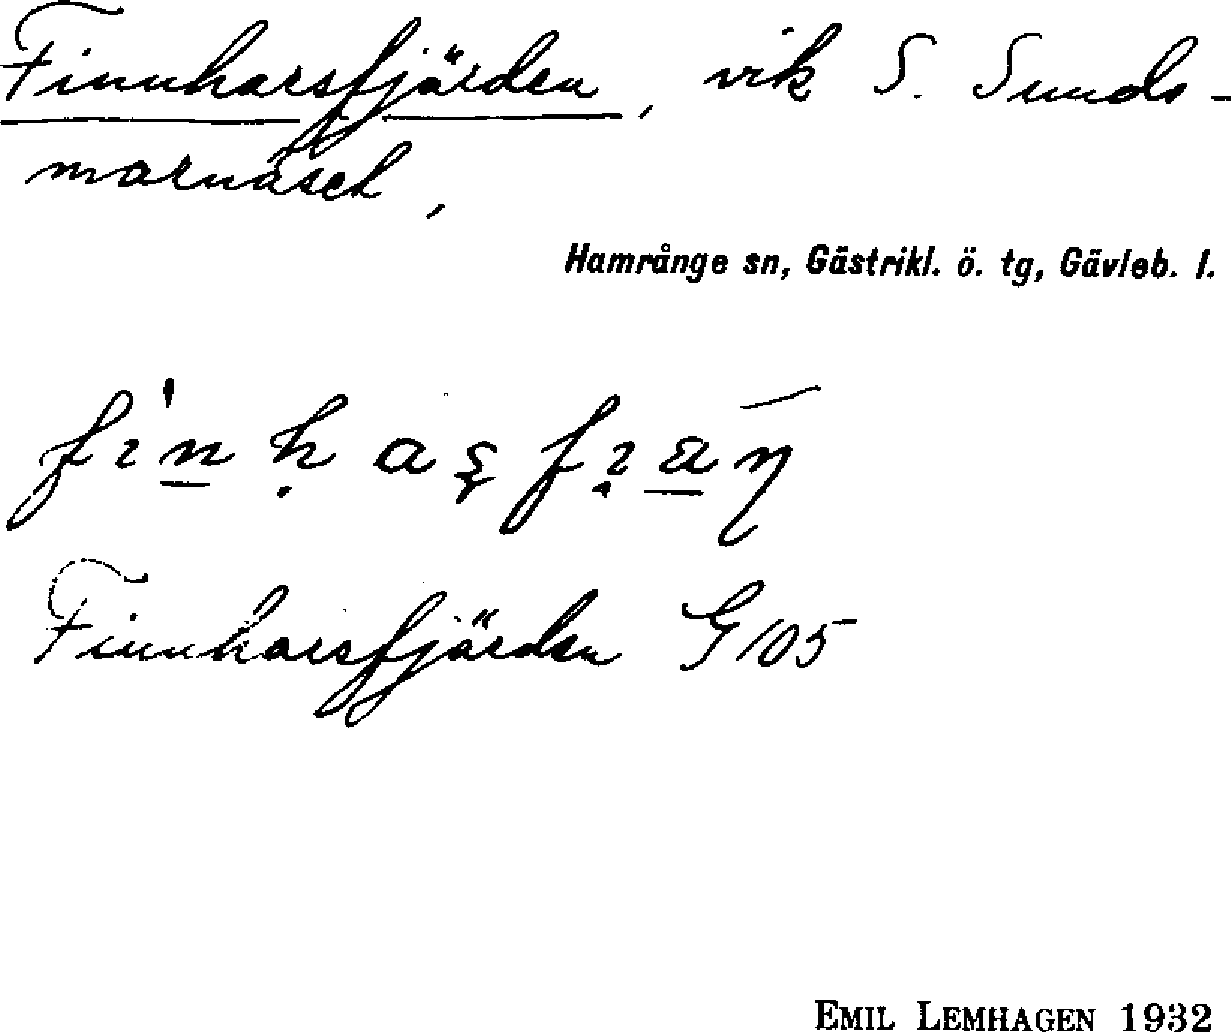 Finnharsfjärden, vik S. Sunds-
marnäset,
Hamrånge sn, Gästrikl. ö. tg, Gävleb. l.
Finnharsfjärden G 105
EMIL LEMHAGEN 1932